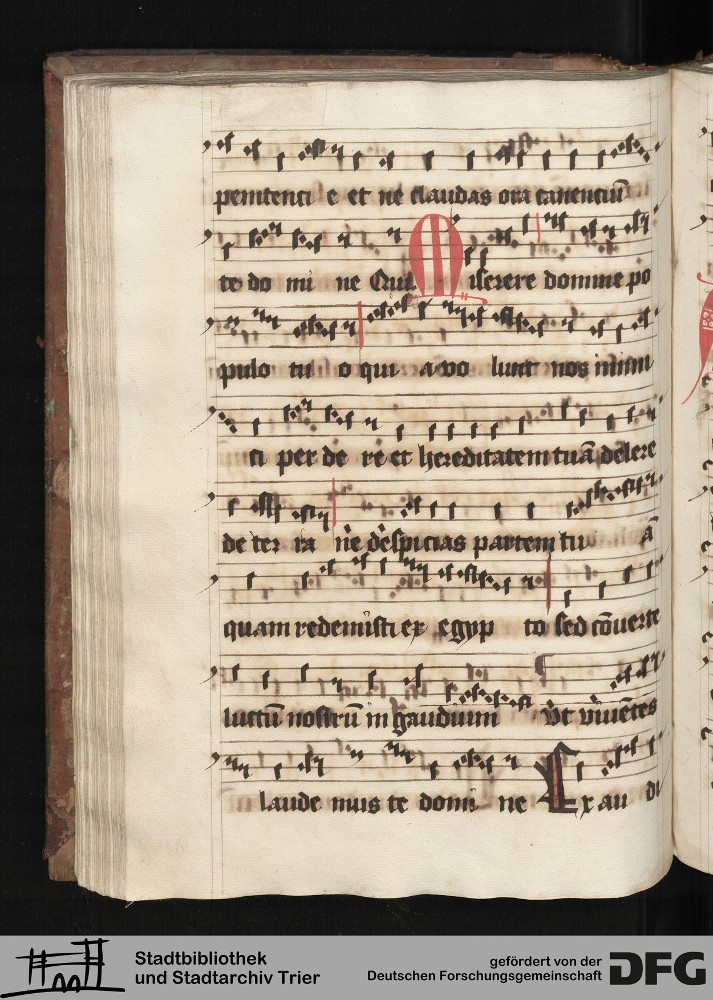 penitenci e et ne claudas ora canenciū
te do mi ne Qui Miserere domine po
pulo tu o qui a vo lunt nos inimi
ci per de re et hereditatem tuā delere
de ter ra ne despicias partem tu ā
quam redemisti ex egyp to sed cōuerte
luctū nostrū in gaudium vt viuētes
laude mus te domi ne Ex au di
Stadtbibliothek
und Stadtarchiv Trier
gefördert von der
Deutschen Forschungsgemeinschaft
DFG